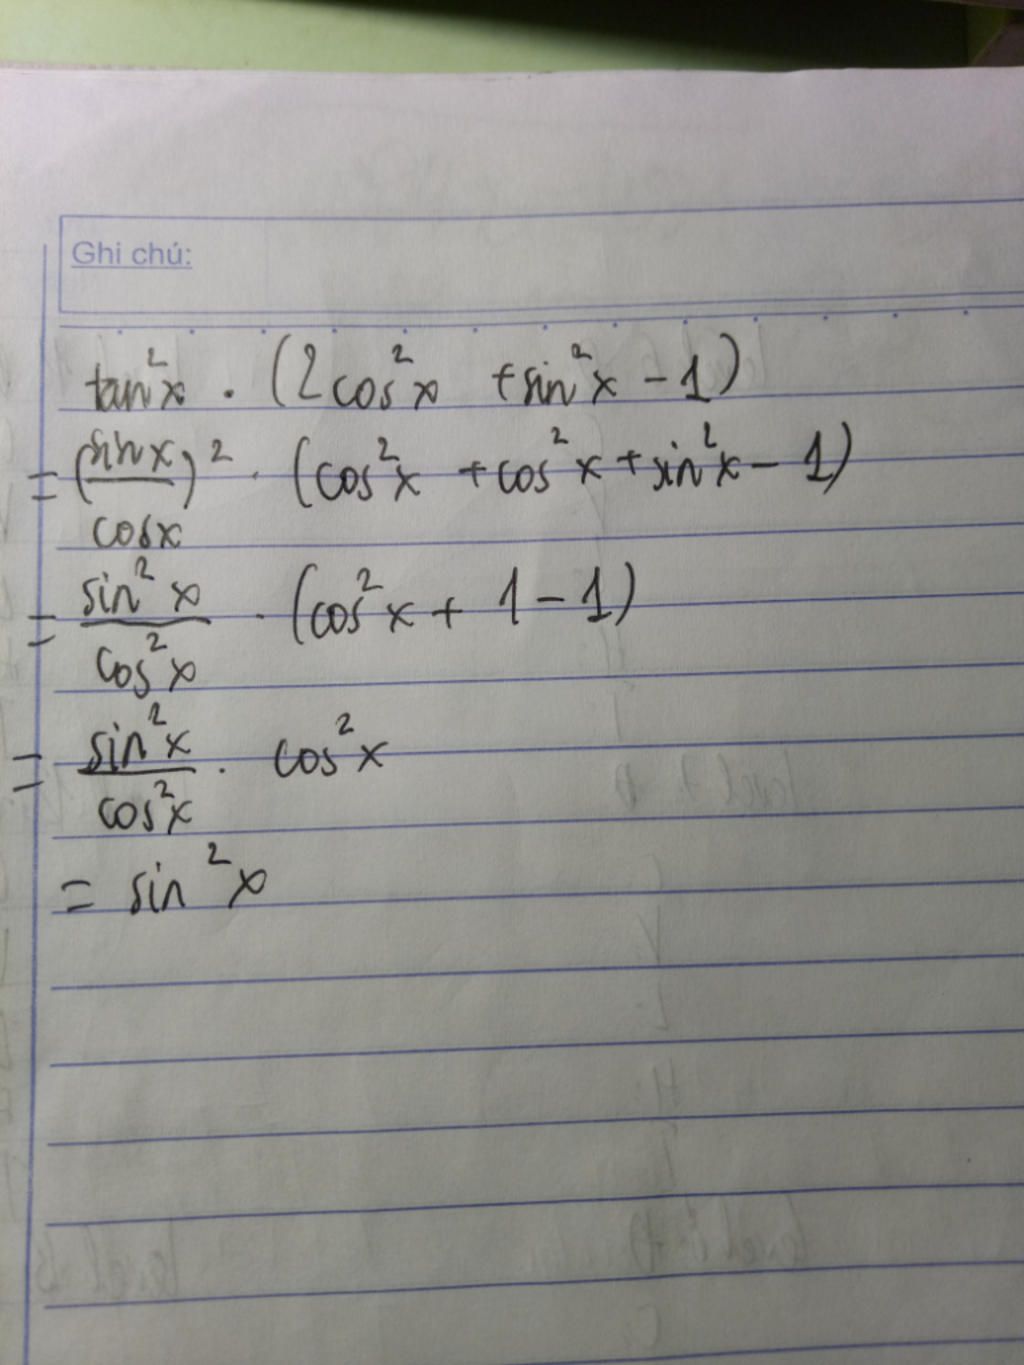 Ghi chú:
tan²x . (2cos²x + sin²x - 1)
= (sin x / cosx)² . (cos²x + cos²x + sin²x - 1)
= sin²x / cos²x . (cos²x + 1 - 1)
= sin²x / cos²x . cos²x
= sin²x